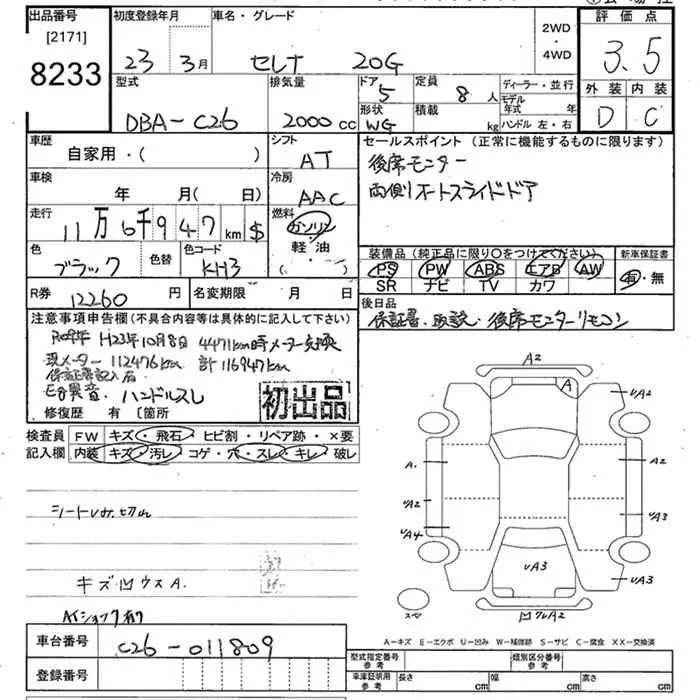 出品番号 初度登録年月 車名・グレード 2WD・4WD 評価点
[2171]
8233
23年 3月 セレナ 20G 3.5
型式 排気量 ドア 5 定員 8人 ディーラー・並行 外装 内装
DBA-C26 2000cc 形状 WG 積載 kg モデル年式 年 D C
ハンドル 左・右
車歴 シフト セールスポイント(正常に機能するものに限ります)
自家用・( ) AT 後席モニター
車検 冷房 両側オートスライドドア
年 月(日) AAC
走行 燃料
11万6千947km $ ガソリン
軽・油
( ・ )
色 色替 色コード 装備品(純正品に限り○をつけてください) 新車保証書
ブラック KH3 PS PW ABS エアB AW 有・無
SR ナビ TV カワ
R券 12260円 名変期限 月 日 後日品
保証書、取説、後席モニターリモコン
注意事項申告欄(不具合内容等は具体的に記入して下さい)
H23年10月8日 4471km時メーター交換
現メーター 112476km 計116947km
保証書記入有
E/g異音・ハンドルスレ
修復歴 有 〔箇所
初出品
検査員 FW キズ・飛石・ヒビ割・リペア跡・×要
記入欄 内装 キズ・汚レ・コゲ・穴・スレ・キレ・破レ
シート切れ
キズ凹ウスA.
A2
A
UA2
A.
A2
UA2
UA3
UA4
UA3
UA3
スペ
A2
A-キズ E-エクボ U-凹み W-補修跡 S-サビ C-腐食 XX-交換済
車台番号 C26-011809
登録番号
型式指定番号 参考 類別区分番号 参考
車庫証明用 参考 長さ cm 幅 cm 高さ cm